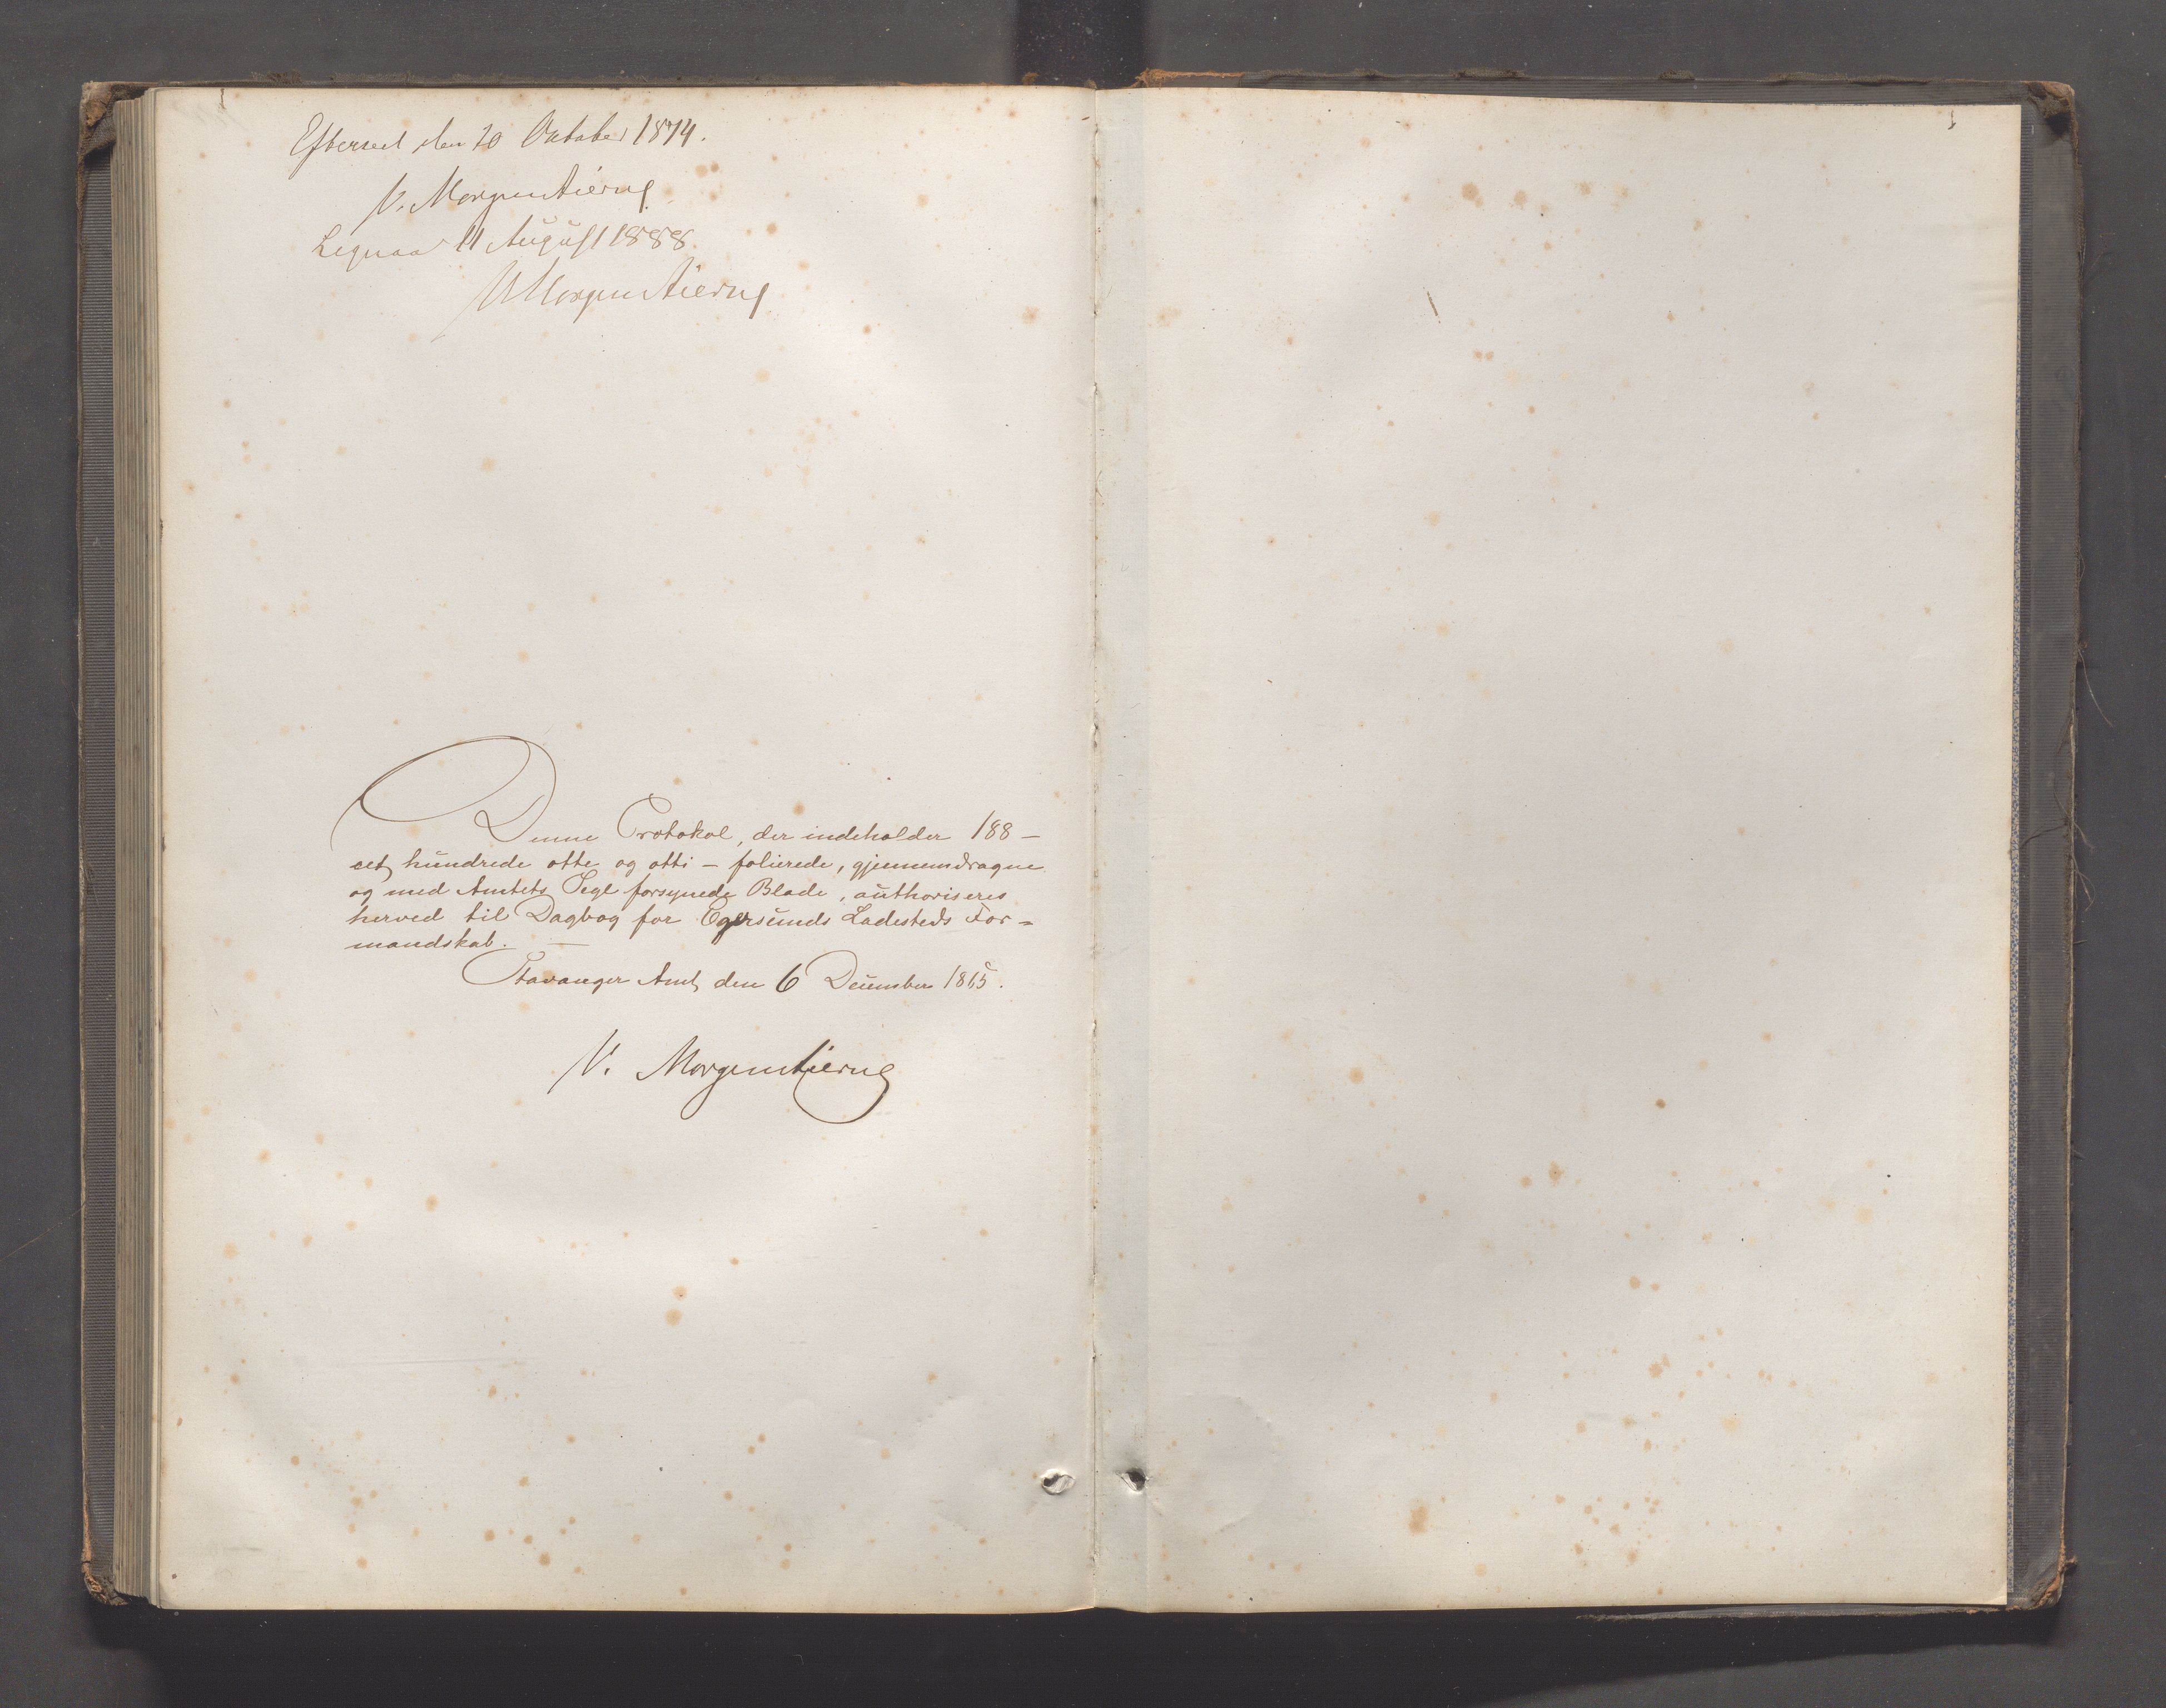 Efterseet den 20 Oktober 1874.
V. Morgenstierne
Ligesaa 11 August 1888.
V Morgenstierne
Denne Protokol, der indeholder 188 –
eet hundrede otte og otti – folierede, gjennemdragne
og med Amtets Segl forsynede Blade, authoriseres
herved til Dagbog for Egersunds Ladesteds For-
mandskab. —
Stavanger Amt, den 6 December 1865.
V. Morgenstierne